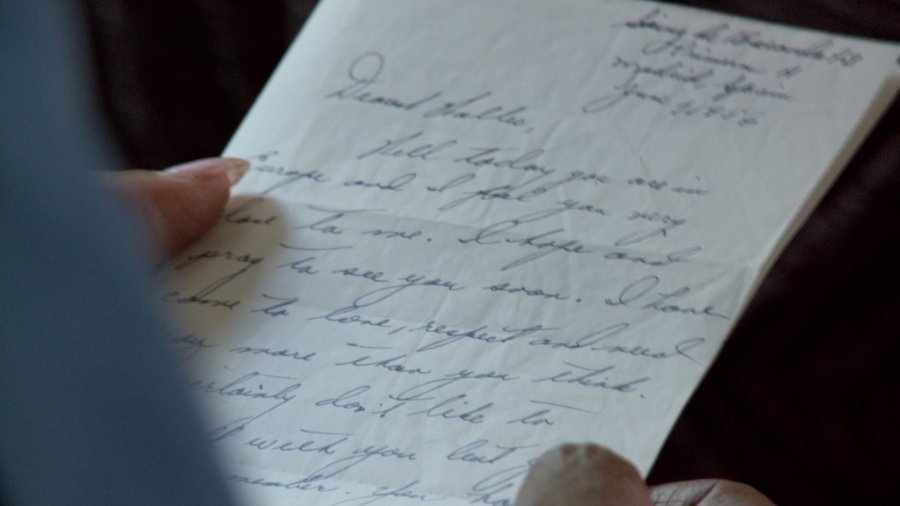 Madrid, Spain
June
Dearest Wallie,
Well today you are in
Europe and I feel you very
close to me. I hope and
pray to see you soon. I have
come to love, respect and need
more than you think.
certainly don't like to
with you but
remember. You